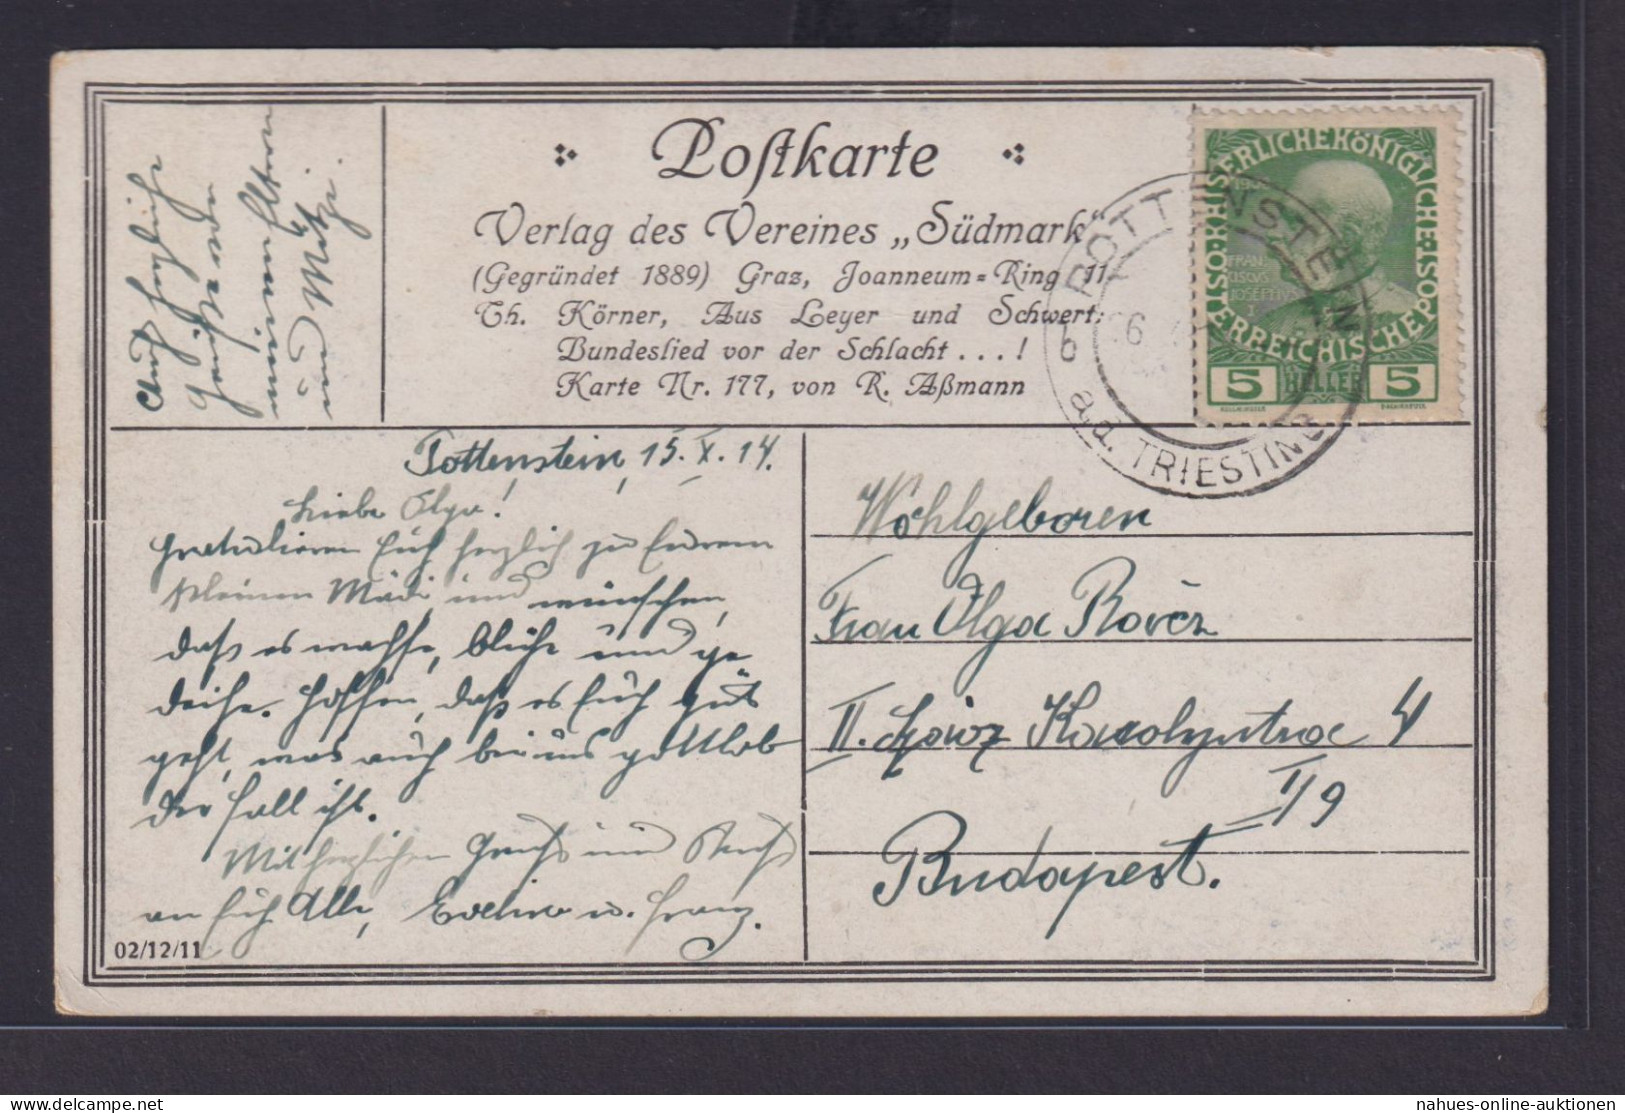 Postkarte
Verlag des Vereines „Südmark“
(Gegründet 1889) Graz, Joanneum=Ring 11
Th. Körner, Aus Leyer und Schwert:
Bundeslied vor der Schlacht . . . !
Karte Nr. 177, von R. Aßmann
KAISERLICHE KÖNIGLICHE ÖSTERREICHISCHE POST
1908
FRAN
CISCVS
IOSEPHVS
I
5 HELLER 5
POTTENSTEIN
b 6
a.d. TRIESTING
Auch herzliche
Grüße von
meinen Eltern
und Mizi.
Pottenstein, 15. X. 14.
Liebe Olga!
Gratulieren Euch herzlich zu Eurem
kleinen Mädi und wünschen,
daß es wachse, blühe und ge
deihe. Hoffen, daß es Euch gut
geht, was auch bei uns gottlob
der Fall ist.
Mit herzlichen Gruß und Kuß
an Euch Alle, u. Franz.
Wohlgeboren
Frau Olga
II. Kacsolyutca 4
I/9
Budapest.
02/12/11
nahues-online-auktionen